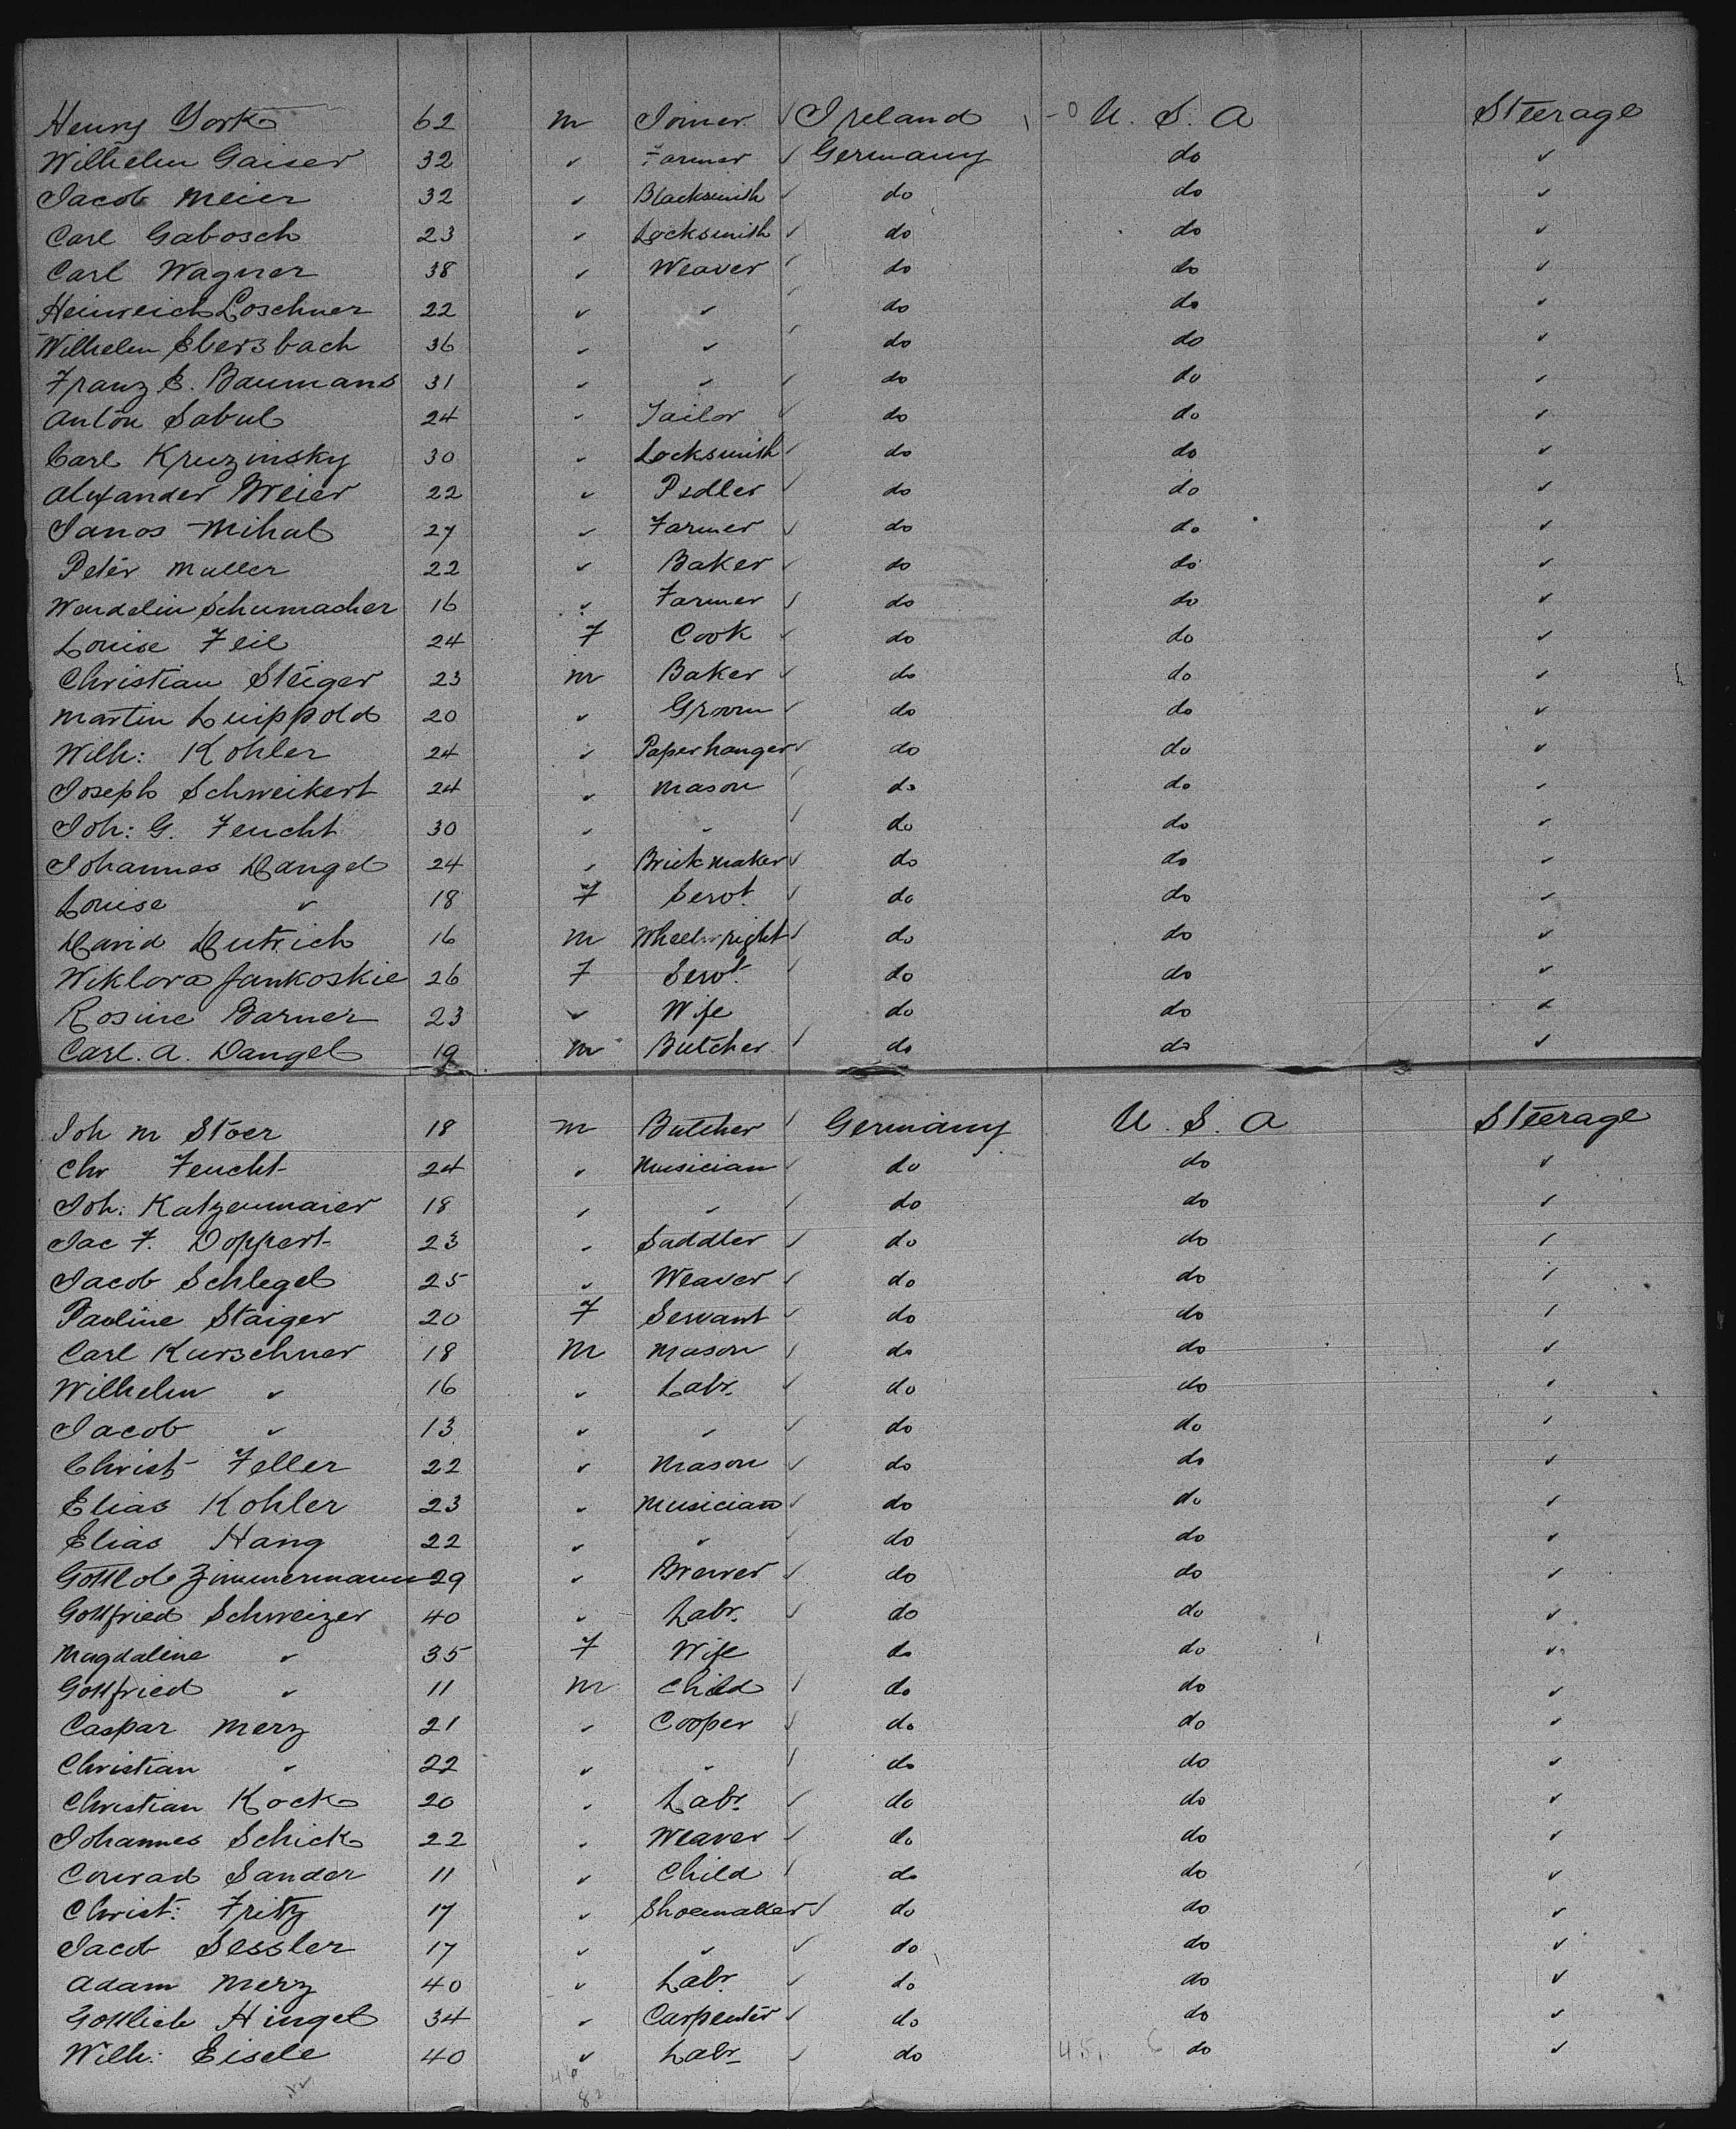 Henry York 62 m Joiner Ireland U. S. A Steerage
Wilhelm Gaiser 32 ✓ Farmer Germany do ✓
Jacob Meier 32 ✓ Blacksmith do do ✓
Carl Gabosch 23 ✓ Locksmith do do ✓
Carl Wagner 38 ✓ Weaver do do ✓
Heinreich Loschner 22 ✓ ✓ do do ✓
Wilhelm Ebersbach 36 ✓ ✓ do do ✓
Franz E. Baumans 31 ✓ ✓ do do ✓
Anton Sabul 24 ✓ Tailor do do ✓
Carl Kruzinsky 30 ✓ Locksmith do do ✓
Alexander Breier 22 ✓ Pedler do do ✓
Janos Mihal 27 ✓ Farmer do do ✓
Peter Muller 22 ✓ Baker do do ✓
Wendelin Schumacher 16 ✓ Farmer do do ✓
Louise Feil 24 F Cook do do ✓
Christian Steiger 23 m Baker do do ✓
Martin Luippold 20 ✓ Groom do do ✓
Wilh: Kohler 24 ✓ Paperhanger do do ✓
Joseph Schweikert 24 ✓ Mason do do ✓
Joh: G. Feucht 30 ✓ ✓ do do ✓
Johannes Dangel 24 ✓ Brickmaker do do ✓
Louise ✓ 18 F Servt. do do ✓
David Dutrich 16 m Wheelwright do do ✓
Wiklora Jankoskie 26 F Servt. do do ✓
Rosine Barner 23 ✓ Wife do do ✓
Carl. A. Dangel 19 m Butcher do do ✓
Joh M Stoer 18 m Butcher Germany U. S. A Steerage
Chr Feucht 24 ✓ Musician do do ✓
Joh: Katzenmaier 18 ✓ ✓ do do ✓
Jac F. Doppert 23 ✓ Saddler do do ✓
Jacob Schlegel 25 ✓ Weaver do do ✓
Pauline Staiger 20 F Servant do do ✓
Carl Kurschner 18 M Mason do do ✓
Wilhelm ✓ 16 ✓ Labr. do do ✓
Jacob ✓ 13 ✓ ✓ do do ✓
Christ Feller 22 ✓ Mason do do ✓
Elias Kohler 23 ✓ Musician do do ✓
Elias Hang 22 ✓ ✓ do do ✓
Gottlob Zimmermann 29 ✓ Brewer do do ✓
Gottfried Schweizer 40 ✓ Labr. do do ✓
Magdaline ✓ 35 F Wife do do ✓
Gottfried ✓ 11 m Child do do ✓
Caspar Merz 21 ✓ Cooper do do ✓
Christian ✓ 22 ✓ ✓ do do ✓
Christian Kock 20 ✓ Labr. do do ✓
Johannes Schick 22 ✓ Weaver do do ✓
Conrad Sander 11 ✓ Child do do ✓
Christ: Fritz 17 ✓ Shoemaker do do ✓
Jacob Sessler 17 ✓ ✓ do do ✓
Adam Merz 40 ✓ Labr. do do ✓
Gottlieb Hingel 34 ✓ Carpenter do do ✓
Wilh: Eisele 40 ✓ Labr do 45. 6 do ✓